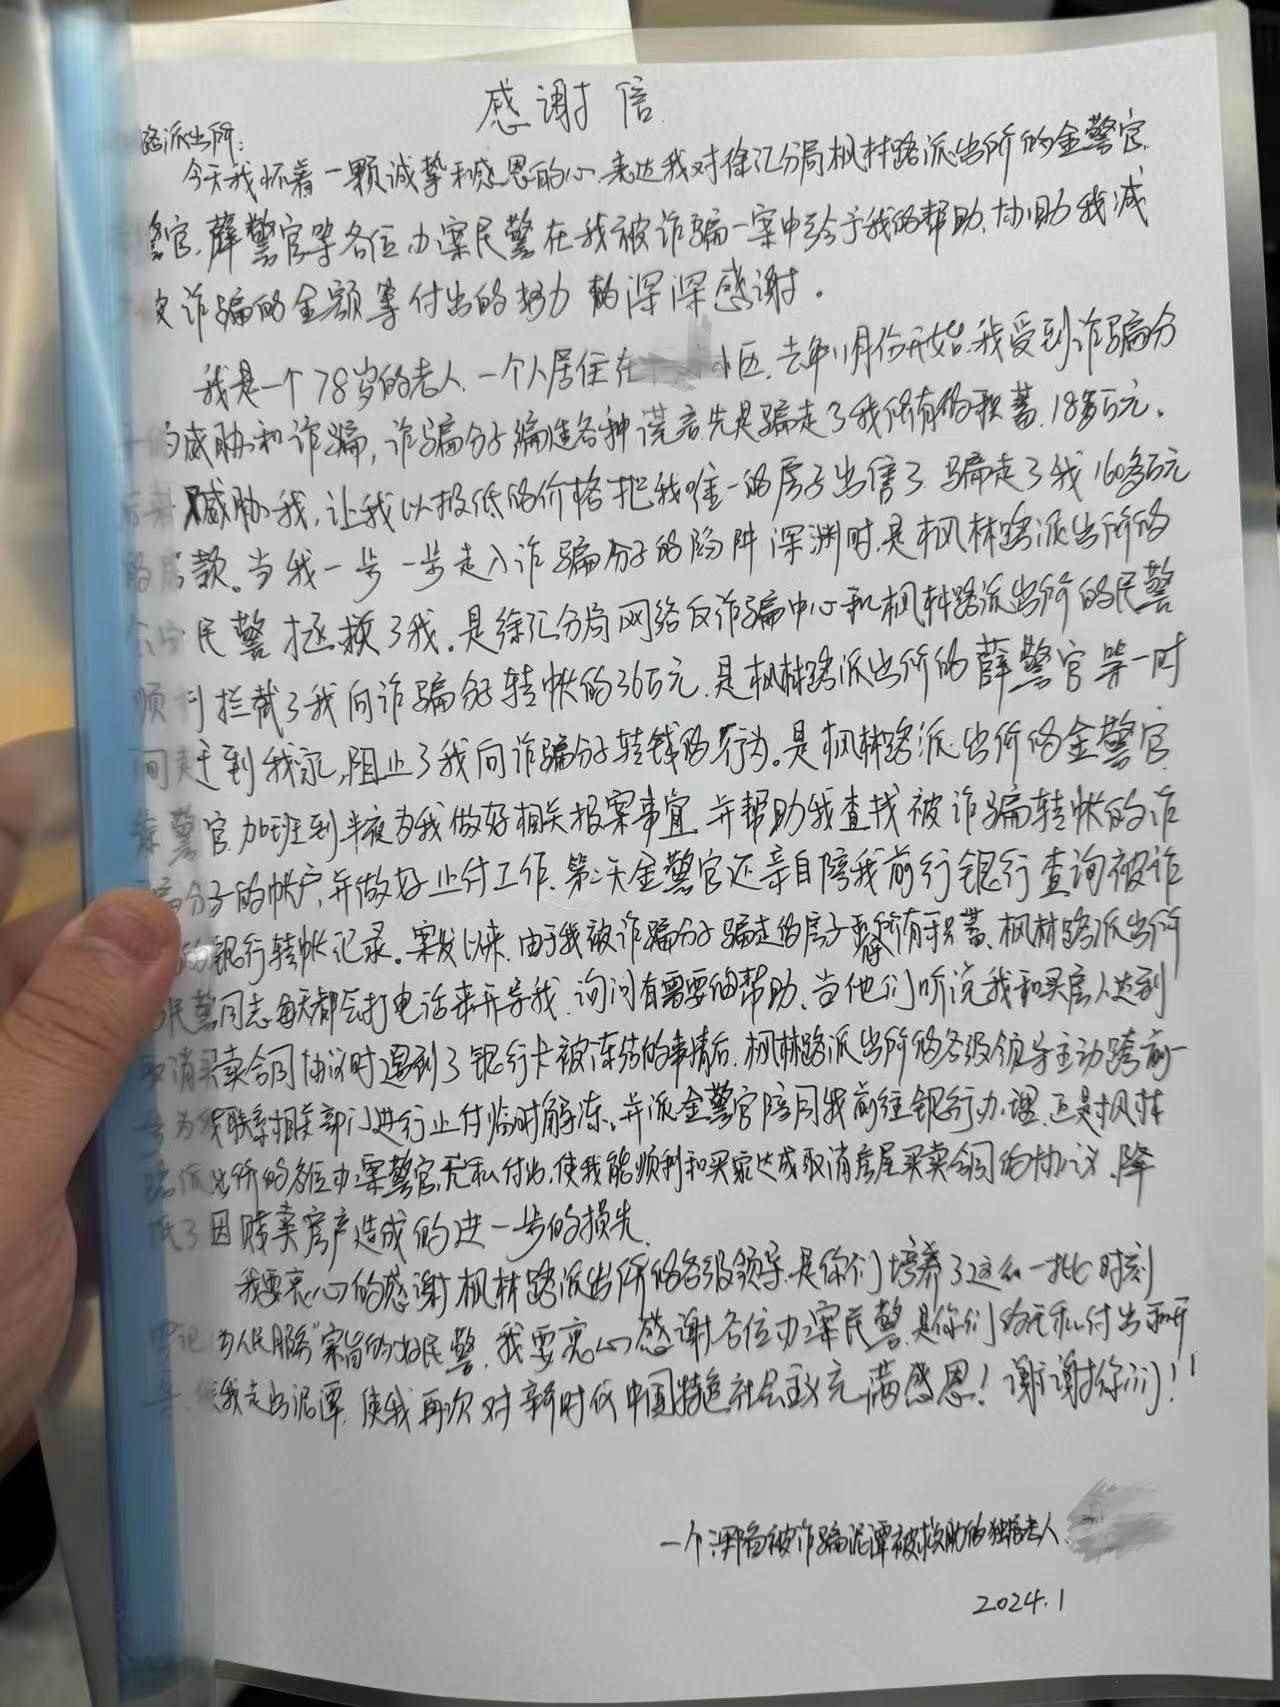 感谢信
路派出所：
今天我怀着一颗诚挚和感恩的心，表达我对徐汇分局枫林路派出所的金警官、
警官、薛警官等各位办案民警在我被诈骗一案中给于我的帮助，协助我减
诈骗的金额等付出的努力的深深感谢。
我是一个78岁的老人，一个人居住在小区，去年11月份开始，我受到诈骗分
的威胁和诈骗，诈骗分子编造各种谎言先是骗走了我所有的积蓄，18多万元。
威胁我，让我以极低的价格把我唯一的房子出售了，骗走了我160多万元
的房款。当我一步一步走入诈骗分子的陷阱深渊时，是枫林路派出所的
民警拯救了我。是徐汇分局网络反诈骗中心和枫林路派出所的民警
顺利拦截了我向诈骗分子转帐的36万元，是枫林路派出所的薛警官等一时
间赶到我家，阻止了我向诈骗分子转钱的行为。是枫林路派出所的金警官、
警官加班到半夜为我做好相关报案事宜，并帮助我查找被诈骗转帐的诈
骗分子的帐户，并做好止付工作，第二天金警官还亲自陪我前行银行查询被诈
的银行转帐记录。案发以来，由于我被诈骗分子骗走的房子和所有积蓄，枫林路派出所
民警同志每天都会打电话来开导我，询问有需要的帮助，当他们听说我和买房人达到
取消买卖合同协议时遇到了银行卡被冻结的事情后，枫林路派出所的各级领导主动跨前一
步为我联系相关部门进行止付临时解冻，并派金警官陪同我前往银行办理，还是枫林
路派出所的各位办案警官，无私付出，使我能顺利和买家达成取消房屋买卖合同的协议，降
低了因贱卖房产造成的进一步的损失。
我要衷心的感谢枫林路派出所的各级领导，是你们培养了这么一批时刻
牢记“为人民服务”宗旨的好民警，我要衷心感谢各位办案民警，是你们的无私付出和开
导使我走出泥潭，使我再次对新时代中国特色社会主义充满感恩！谢谢你们！！
一个深陷被诈骗泥潭被救助的独居老人
2024.1